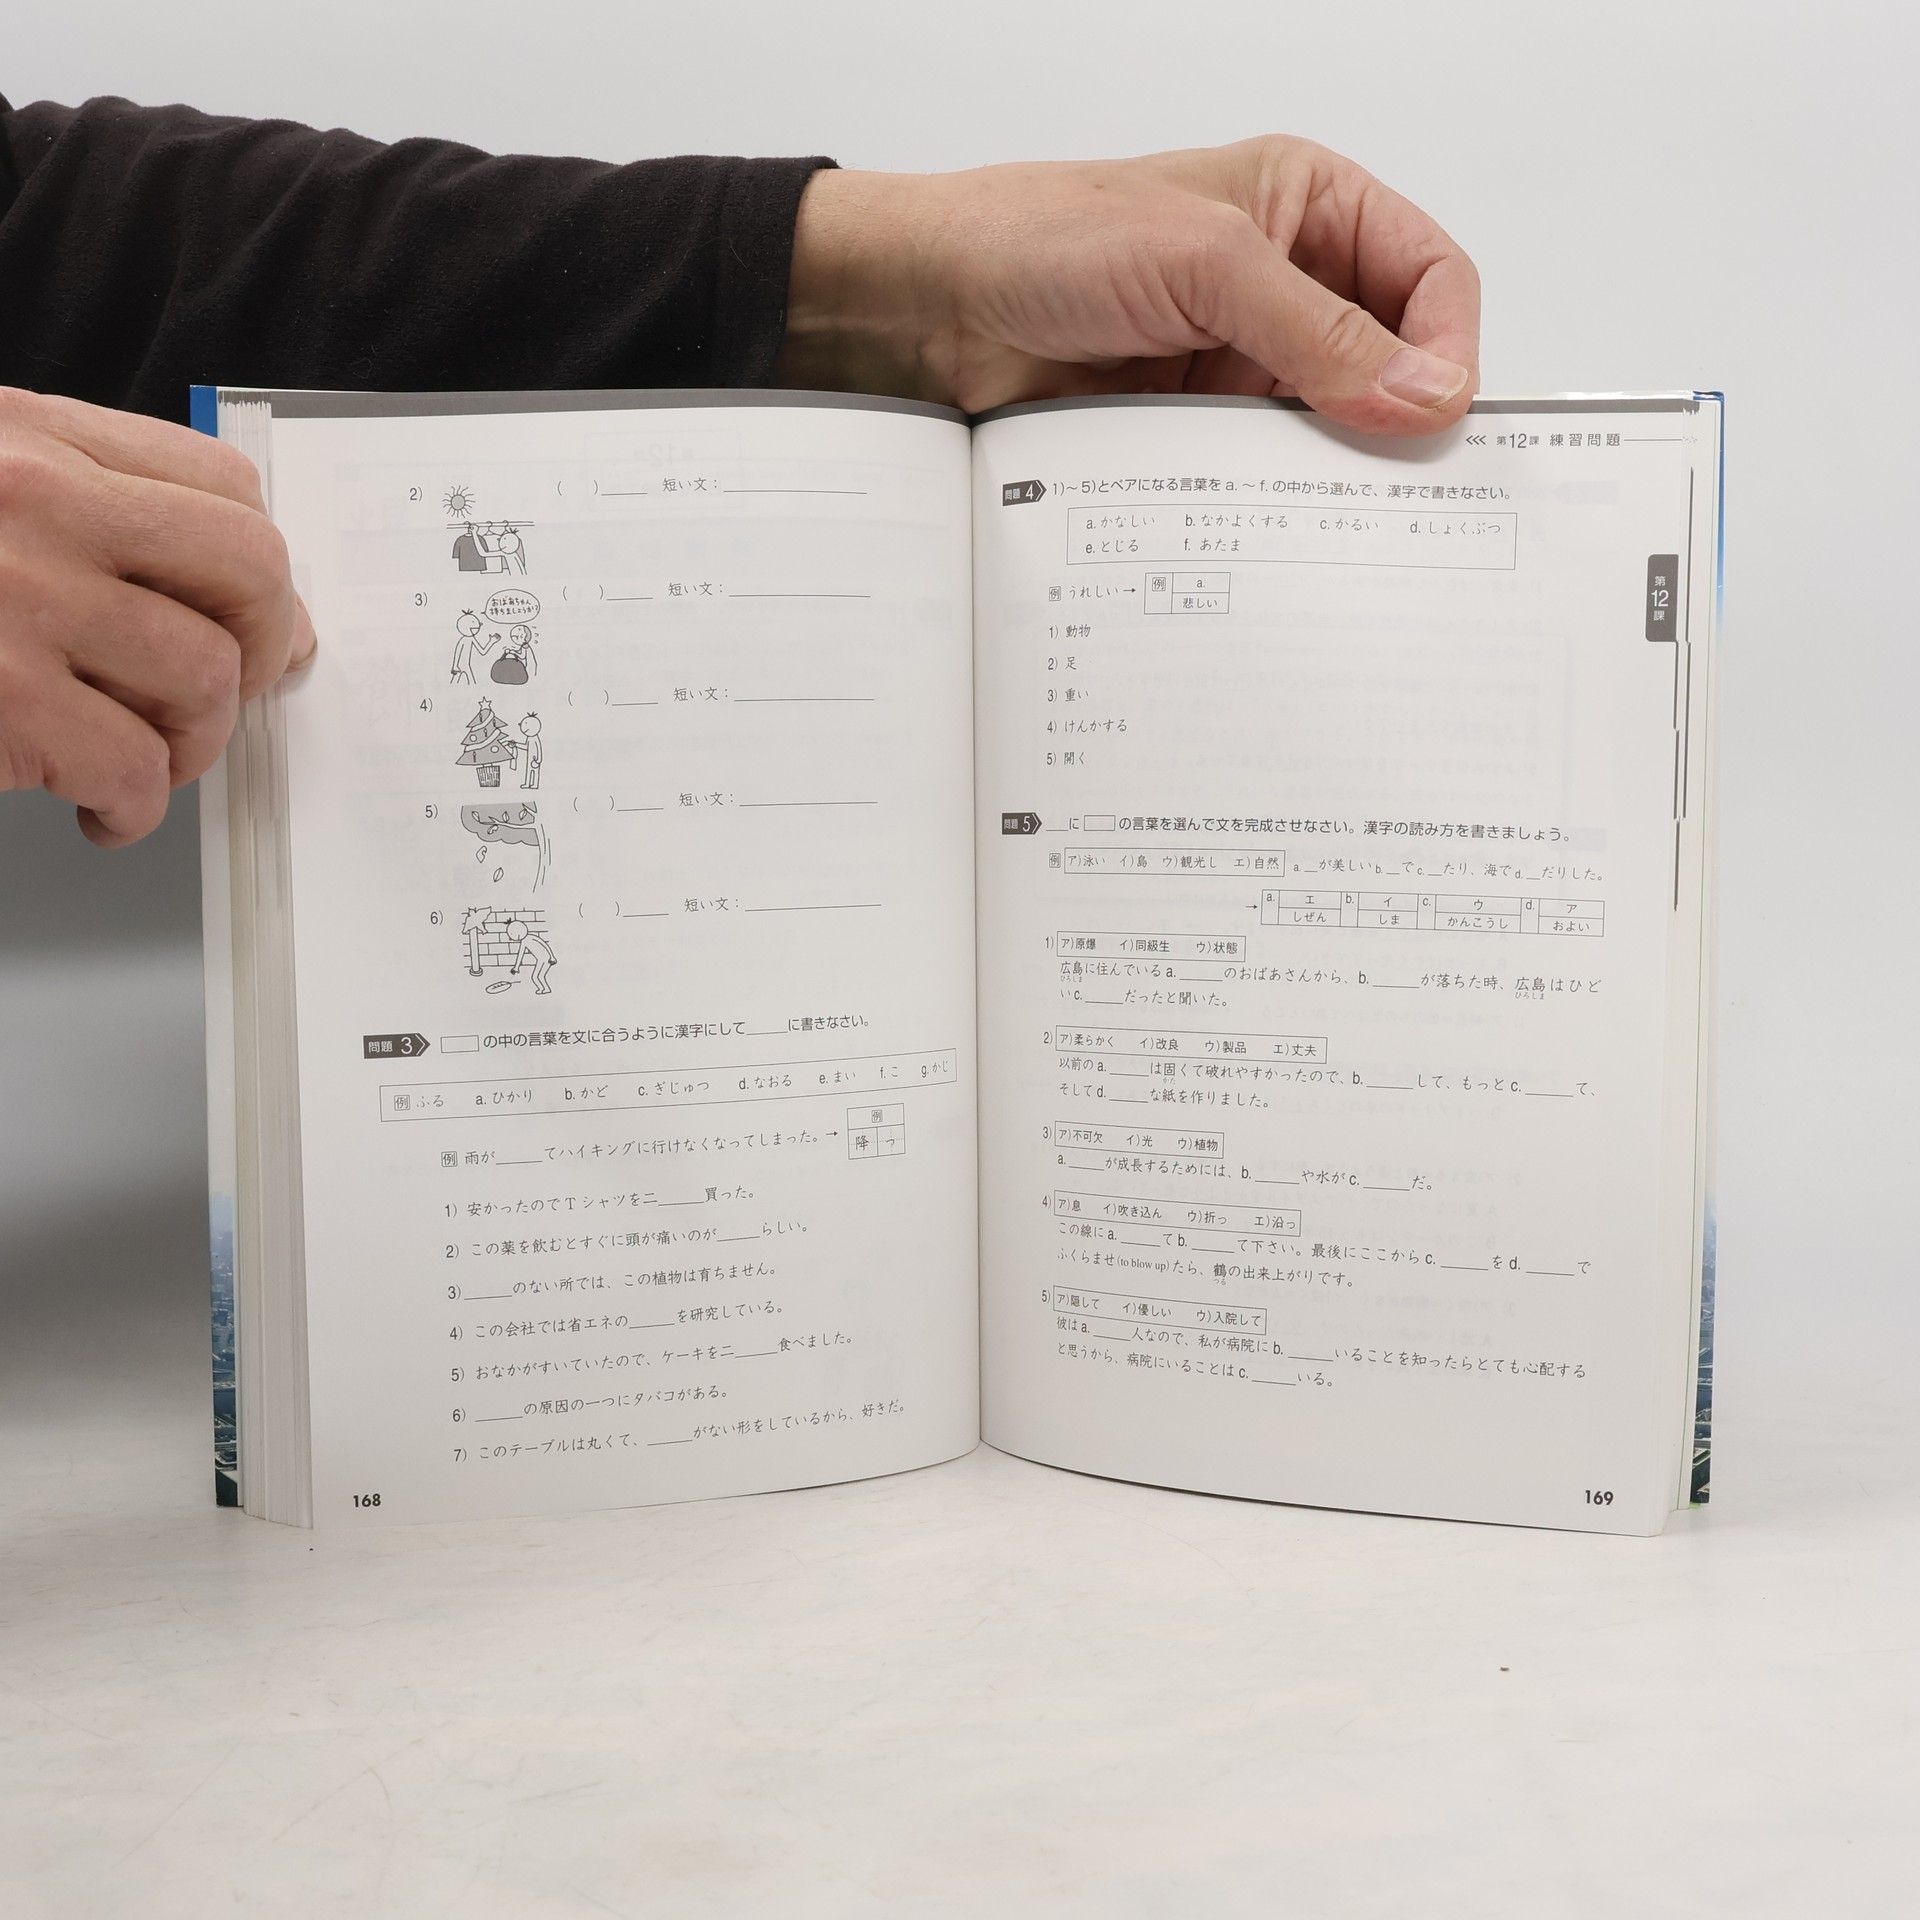 2) ( )____ 短い文：________
3) おばあちゃん ( )____ 短い文：________
持ちましょうか?
4) ( )____ 短い文：________
5) ( )____ 短い文：________
6) ( )____ 短い文：________
問題 3 の中の言葉を文に合うように漢字にして____に書きなさい。
例 ふる a. ひかり b. かど c. ぎじゅつ d. なおる e. まい f. こ g. かじ
例
例 雨が____てハイキングに行けなくなってしまった。→ 降 っ
1) 安かったのでTシャツを二____買った。
2) この薬を飲むとすぐに頭が痛いのが____らしい。
3) ____のない所では、この植物は育ちません。
4) この会社では省エネの____を研究している。
5) おなかがすいていたので、ケーキを二____食べました。
6) ____の原因の一つにタバコがある。
7) このテーブルは丸くて、____がない形をしているから、好きだ。
168
<<< 第12課 練習問題
問題 4 1)～5)とペアになる言葉をa.～f.の中から選んで、漢字で書きなさい。
a. かなしい b. なかよくする c. かるい d. しょくぶつ
e. とじる f. あたま
例 うれしい → 例 a.
悲しい
1) 動物
2) 足
3) 重い
4) けんかする
5) 開く
第
12
課
問題 5 __に の言葉を選んで文を完成させなさい。漢字の読み方を書きましょう。
例 ア)泳い イ)島 ウ)観光し エ)自然 a.__が美しいb.__でc.__たり、海でd.__だりした。
→ a. エ b. イ c. ウ d. ア
しぜん しま かんこうし およい
1) ア)原爆 イ)同級生 ウ)状態
広島に住んでいるa.____のおばあさんから、b.____が落ちた時、広島はひど
ひろしま ひろしま
いc.____だったと聞いた。
2) ア)柔らかく イ)改良 ウ)製品 エ)丈夫
以前のa.____は固くて破れやすかったので、b.____して、もっとc.____て、
かた
そしてd.____な紙を作りました。
3) ア)不可欠 イ)光 ウ)植物
a.____が成長するためには、b.____や水がc.____だ。
4) ア)息 イ)吹き込ん ウ)折っ エ)沿っ
この線にa.____てb.____て下さい。最後にここからc.____をd.____で
ふくらませ(to blow up)たら、鶴の出来上がりです。
つる
5) ア)隠して イ)優しい ウ)入院して
彼はa.____人なので、私が病院にb.____いることを知ったらとても心配する
と思うから、病院にいることはc.____いる。
169